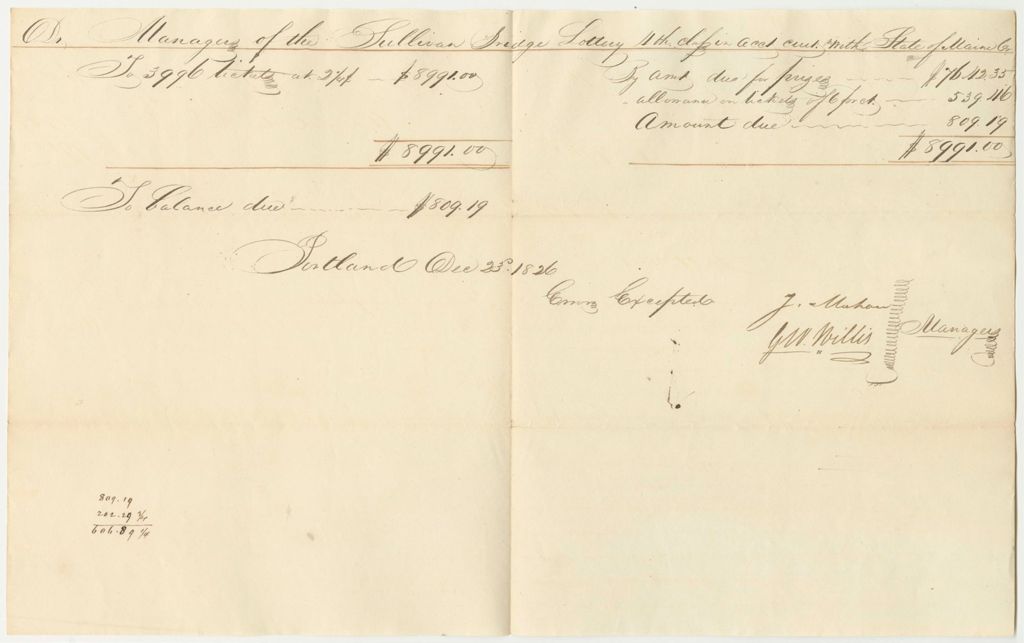 Dr. Managers of the Sullivan Bridge Lottery 4th class in acct curt with State of Maine Cr
To 3996 tickets at 2¼ $8991.00
$8991.00
To balance due $809.19
By amt due for prizes $7642.35
allowance on tickets of 6 pr ct 539.46
Amount due 809.19
$8991.00
Portland Dec 23d. 1826
Errors Excepted
J. Mahan
G.W. Willis
Managers
809.19
202.29 ¾
606.89 ¼